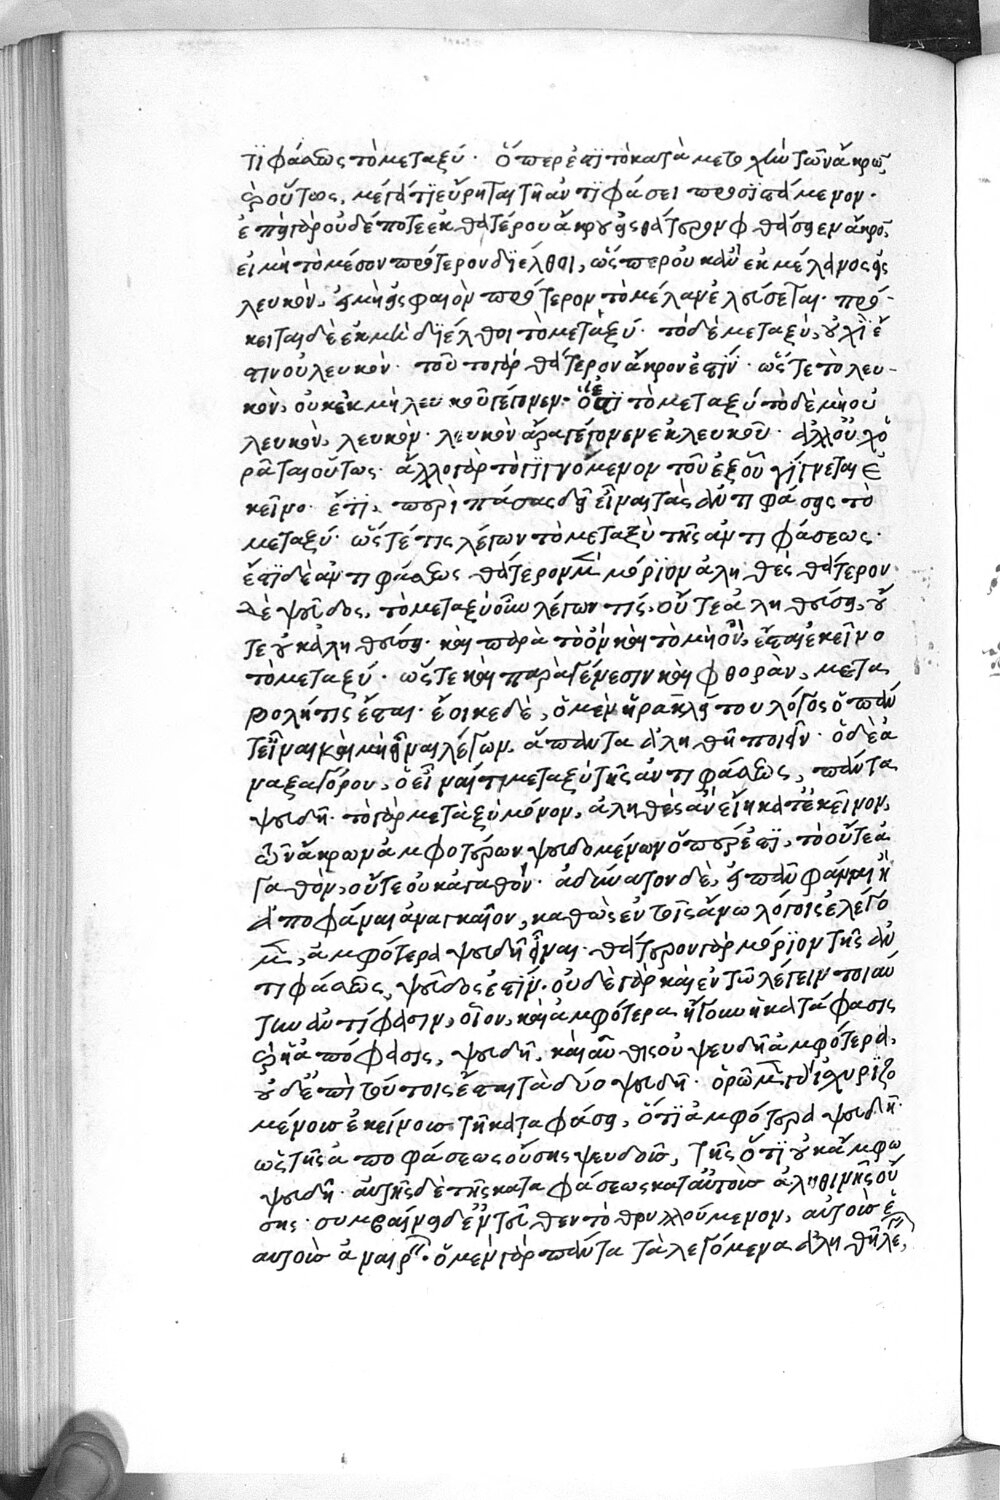 τϊφάσεως τὸ μεταξύ· ὅπερ ἐστὶ τὸ κατὰ μετοχὴν τῶν ἄκρων
οὕτως, μέγα τϊ εὕρηται τῆ ἀντιφάσει προσϊστάμενον·
ἐπεὶ γὰρ οὐδέποτε ἐκ θατέρου ἄκρου εἰς θάτερον φθάσῃ ἐν ἄκρον,
εἰ μὴ τὸ μέσον πρότερον διέλθοι, ὥσπερ οὐκ ἂν ἐκ μέλανος εἰς
λευκὸν, εἰ μὴ εἰς φαιὸν πρότερον τὸ μέλαν ἐλεύσεται· πρό-
κειται δὲ ἐκ μὴ διέλθοι τὸ μεταξύ· τὸ δὲ μεταξὺ, οὐχὶ ἔ
στιν οὐ λευκόν· τοῦτο γὰρ θάτερον ἄκρον ἐστίν· ὥστε τὸ λευ-
κὸν, οὐκ ἐκ μὴ λευκοῦ γέγονεν· ἔστι τὸ μεταξὺ τὸ δὲ μὴ οὐ
λευκὸν, λευκόν· λευκὸν ἄρα γέγονεν ἐκ λευκοῦ· ἀλλ' οὐχ ὁ
ρᾶται οὕτως· ἄλλο γὰρ τὸ γϊγνόμενον τοῦ ἐξ οὗ γίγνεται ἐ
κεῖνο· ἔτι, περὶ πάσας δεῖ εἶναι τὰς ἀντιφάσεις τὸ
μεταξύ· ὥστέ τις λέγων τὸ μεταξὺ τῆς ἀντιφάσεως·
ἔστι δὲ ἀντιφάσεως θάτερον μὲν μόρϊον ἀληθὲς θάτερον
δὲ ψεῦδος, τὸ μεταξὺ οὖν λέγων τίς, οὔτε ἀληθεύσῃ, οὔ
τε οὐκ ἀληθεύσῃ· καὶ παρὰ τὸ ὂν καὶ τὸ μὴ ὂν, ἔσται ἐκεῖνο
τὸ μεταξύ· ὥστε καὶ παρὰ γένεσιν καὶ φθορὰν, μετα
βολή τις ἔσται· ἔοικε δὲ, ὁ μὲν ἡρακλείτου λόγος ὁ πάν
τ' εἶναι καὶ μὴ εἶναι λέγων, ἅπαντα ἀληθῆ ποιεῖν· ὁ δὲ ἀ
ναξαγόρου, ὁ εἶναί τι μεταξὺ τῆς ἀντιφάσεως, πάντα
ψευδῆ· τὸ γὰρ μεταξὺ μόνον, ἀληθὲς ἂν εἴη κατ' ἐκεῖνον,
τῶν ἄκρων ἀμφοτέρων ψευδομένων ὅπερ ἐστὶ, τὸ οὔτε ἀ
γαθὸν, οὔτε οὐκ ἀγαθόν· ἀδύνατον δὲ, εἰ πᾶν φάναι ἢ
ἀποφάναι ἀναγκαῖον, καθὼς ἐν τοῖς ἄνω λόγοις ἐλέγο
μεν, ἀμφότερα ψευδῆ εἶναι· θάτερον γὰρ μόρϊον τῆς ἀν
τιφάσεως, ψεῦδος ἐστίν· οὐδὲ γὰρ καὶ ἐν τῷ λέγειν τοιαύ
την ἀντίφασιν, οἷον, καὶ ἀμφότερα ἤγουν ἡ κατάφασις
καὶ ἡ ἀπόφασις, ψευδῆ, καὶ αὖθις οὐ ψευδῆ ἀμφότερα,
οὐδ' ἐπὶ τούτοις ἔσται τὰ δύο ψευδῆ· ὁρῶμεν γὰρ ἰσχυρϊζο
μένοις ἐκείνοις τῆ καταφάσει, ὅτϊ ἀμφότερα ψευδῆ·
ὡς τῆς ἀποφάσεως οὔσης ψευδοῦς, τῆς ὅτϊ οὐκ ἄμφω
ψευδῆ· αὐτῆς δὲ τῆς καταφάσεως κατ' αὐτοὺς ἀληθινῆς οὔ
σης· συμβαίνει δ' ἐντεῦθεν τὸ θρυλλούμενον, αὐτοὺς ἑ
αυτοὺς ἀναιρεῖν· ὁ μὲν γὰρ πάντα τὰ λεγόμενα ἀληθῆ λέ,